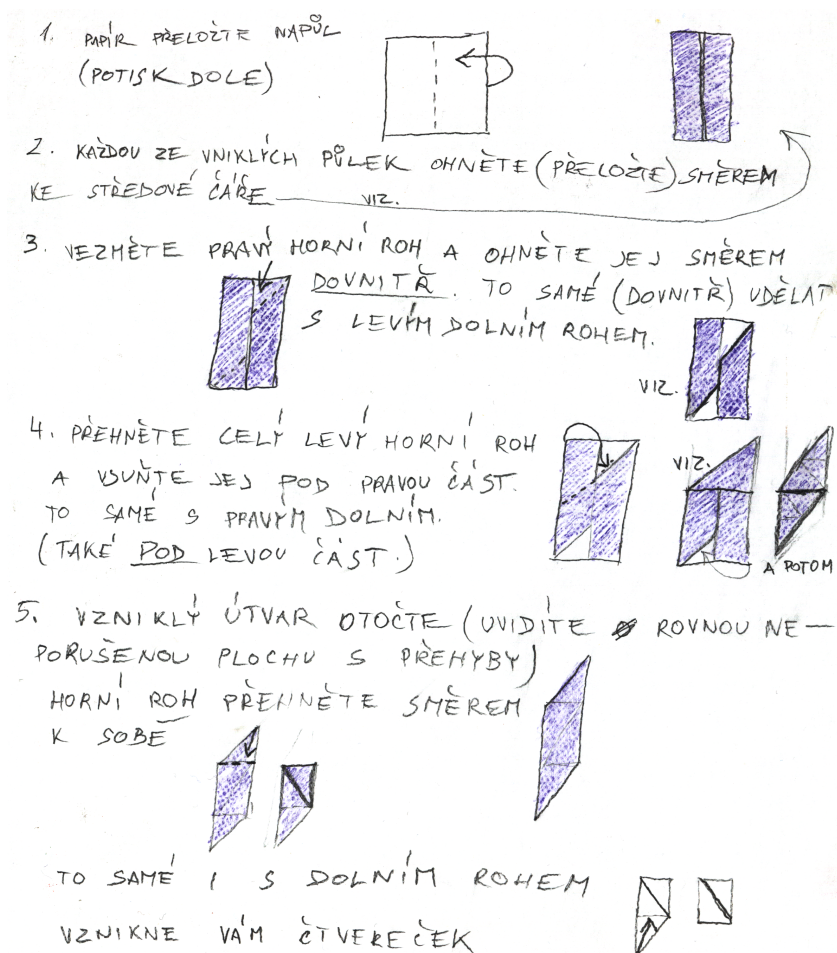 1. PAPÍR PŘELOŽTE NAPŮL
(POTISK DOLE)
2. KAŽDOU ZE VNIKLÝCH PŮLEK OHNĚTE (PŘELOŽTE) SMĚREM
KE STŘEDOVÉ ČÁŘE
VIZ.
3. VEZMĚTE PRAVÝ HORNÍ ROH A OHNĚTE JEJ SMĚREM
DOVNITŘ. TO SAMÉ (DOVNITŘ) UDĚLAT
S LEVÝM DOLNÍM ROHEM.
VIZ.
4. PŘEHNĚTE CELÝ LEVÝ HORNÍ ROH
A VSUŇTE JEJ POD PRAVOU ČÁST.
TO SAMÉ S PRAVÝM DOLNÍM.
(TAKÉ POD LEVOU ČÁST.)
VIZ.
A POTOM
5. VZNIKLÝ ÚTVAR OTOČTE (UVIDÍTE ROVNOU NE-
PORUŠENOU PLOCHU S PŘEHYBY)
HORNÍ ROH PŘEHNĚTE SMĚREM
K SOBĚ
TO SAMÉ I S DOLNÍM ROHEM
VZNIKNE VÁM ČTVEREČEK